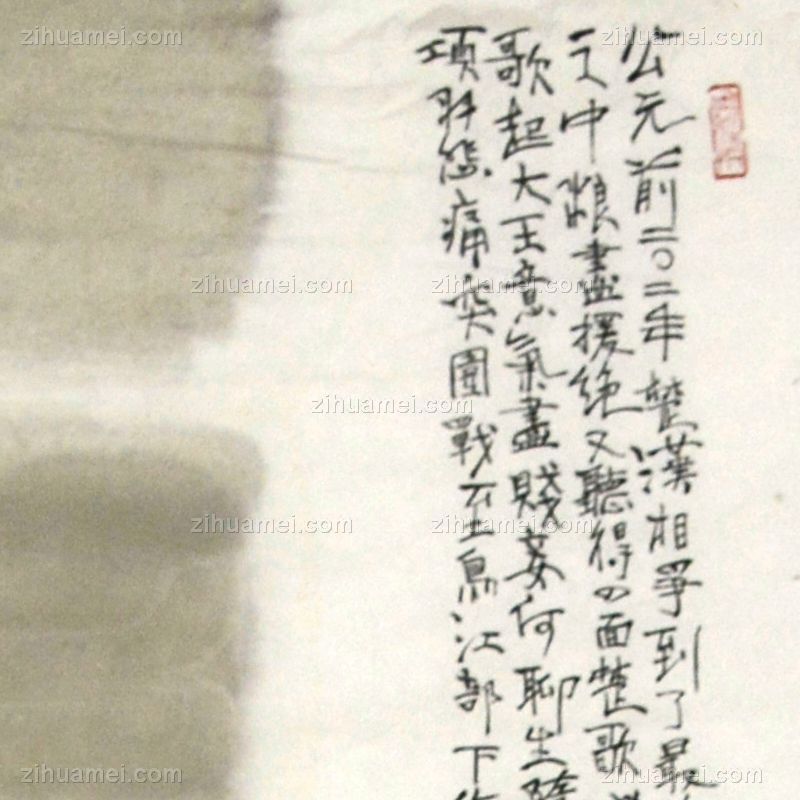 公元前二〇二年楚漢相爭到了最
之中粮盡援絕又聽得四面楚歌
歌起大王意气盡賤妾何聊生
項羽悲痛突圍戰至烏江部下
zihuamei.com
zihuamei.com
zihuamei.com
zihuamei.com
zihuamei.com
zihuamei.com
zihuamei.com
zihuamei.com
zihuamei.com
zihuamei.com
zihuamei.com
zihuamei.com
zihuamei.com